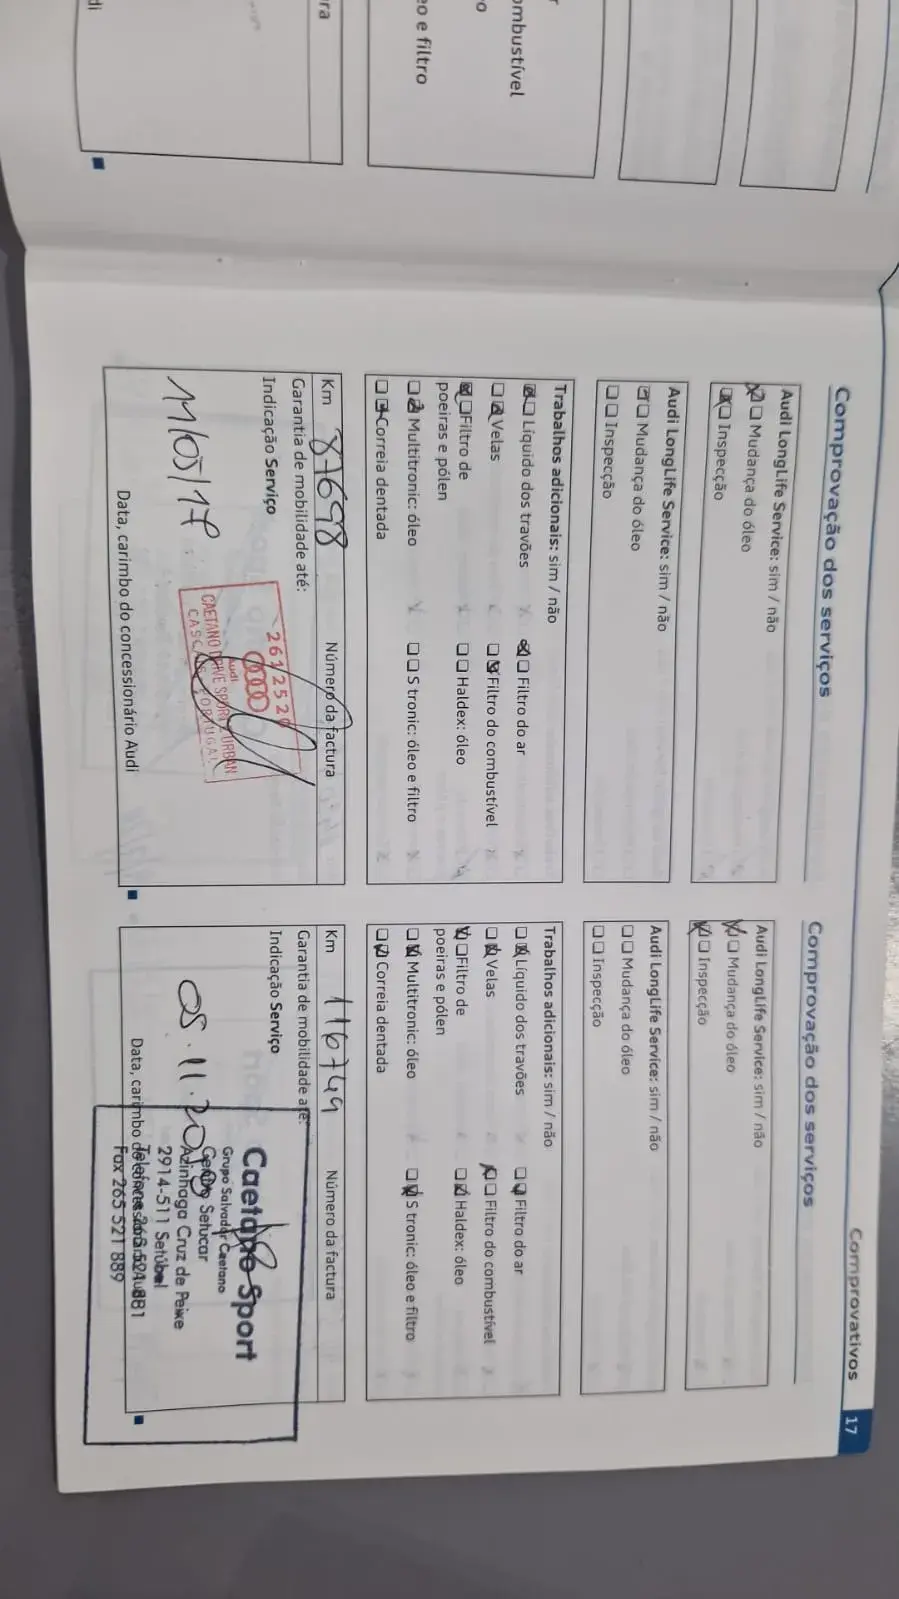 Comprovativos
17
Comprovação dos serviços
Audi LongLife Service: sim / não
Mudança do óleo
Inspecção
Audi LongLife Service: sim / não
Mudança do óleo
Inspecção
Trabalhos adicionais: sim / não
Líquido dos travões
Filtro do ar
Velas
Filtro do combustível
Filtro de
poeiras e pólen
Haldex: óleo
Multitronic: óleo
S tronic: óleo e filtro
Correia dentada
Km 87698
Número da factura
Garantia de mobilidade até:
Indicação Serviço
11/05/17
2612520
Audi
CAETANO DRIVE SPORT URBAN
CASCAIS PORTUGAL
Data, carimbo do concessionário Audi
Comprovação dos serviços
Audi LongLife Service: sim / não
Mudança do óleo
Inspecção
Audi LongLife Service: sim / não
Mudança do óleo
Inspecção
Trabalhos adicionais: sim / não
Líquido dos travões
Filtro do ar
Velas
Filtro do combustível
Filtro de
poeiras e pólen
Haldex: óleo
Multitronic: óleo
S tronic: óleo e filtro
Correia dentada
Km 116749
Número da factura
Garantia de mobilidade até:
Indicação Serviço
05.11.20
Caetano Sport
Grupo Salvador Caetano
Setucar
Azinhaga Cruz de Peixe
2914-511 Setúbal
Fax 265 521 889
Data, carimbo do concessionário Audi
ombustível
eo e filtro